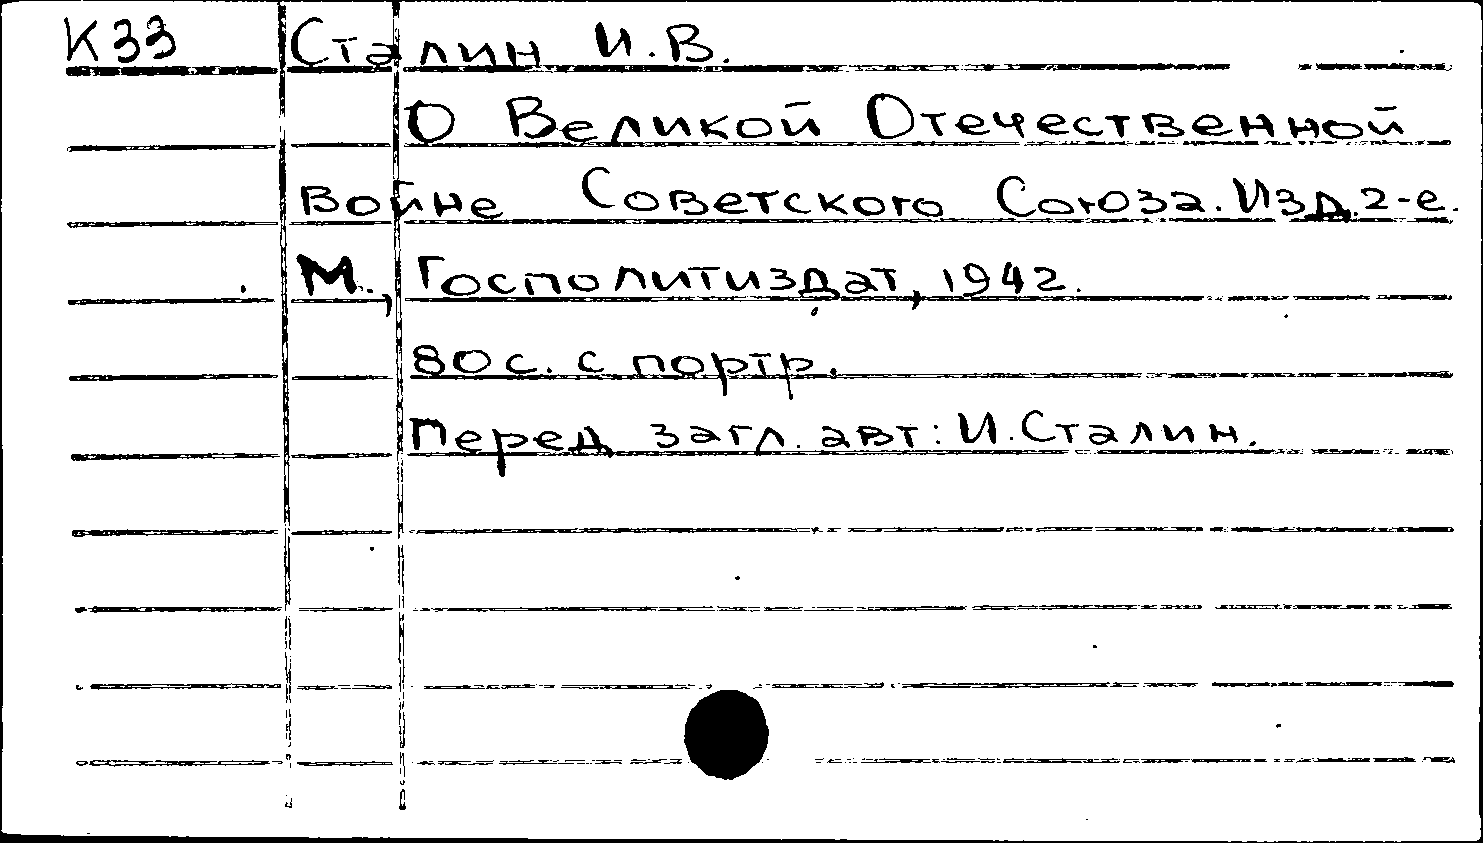 К33 Сталин И.В.
О Великой Отечественной
войне Советского Союза. Изд. 2-е.
М., Госполитиздат, 1942.
80 с. с портр.
Перед загл. авт: И. Сталин.